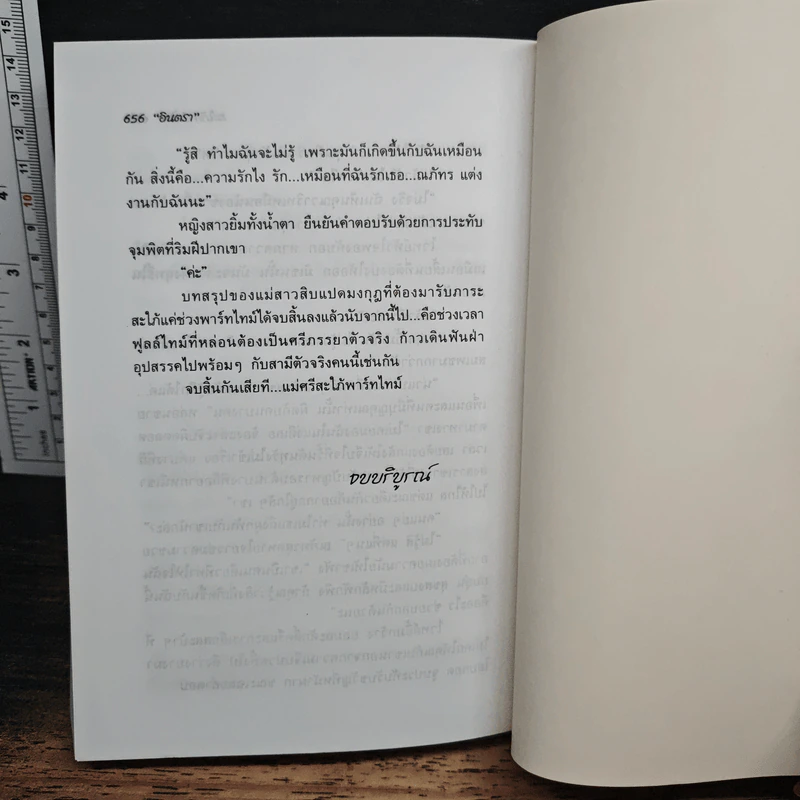 656 “อินตรา”
“รู้สิ ทำไมฉันจะไม่รู้ เพราะมันก็เกิดขึ้นกับฉันเหมือน
กัน สิ่งนี้คือ...ความรักไง รัก...เหมือนที่ฉันรักเธอ...ณภัทร แต่ง
งานกับฉันนะ”
หญิงสาวยิ้มทั้งน้ำตา ยืนยันคำตอบรับด้วยการประทับ
จุมพิตที่ริมฝีปากเขา
“ค่ะ”
บทสรุปของแม่สาวสิบแปดมงกุฎที่ต้องมารับภาระ
สะใภ้แค่ช่วงพาร์ทไทม์ได้จบสิ้นลงแล้วนับจากนี้ไป...คือช่วงเวลา
ฟูลล์ไทม์ที่หล่อนต้องเป็นศรีภรรยาตัวจริง ก้าวเดินฟันฝ่า
อุปสรรคไปพร้อมๆ กับสามีตัวจริงคนนี้เช่นกัน
จบสิ้นกันเสียที...แม่ศรีสะใภ้พาร์ทไทม์
จบบริบูรณ์
15
14
13
12
11
10
9
8
7
6
5
4
3
2
1
4
3
2
1
inches